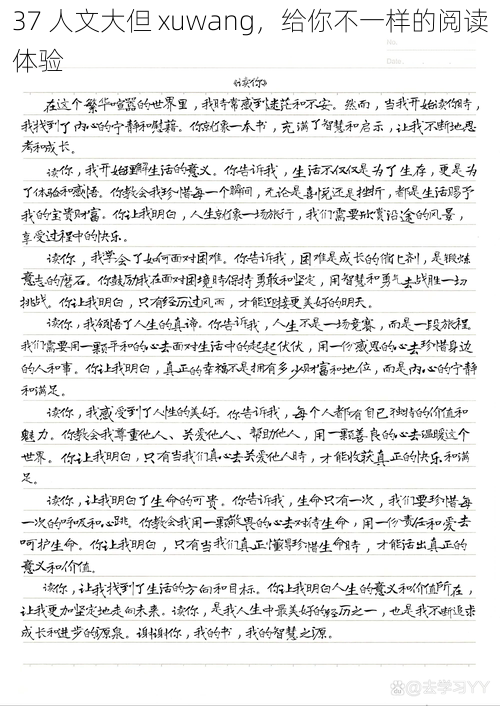 37 人文大但 xuwang，给你不一样的阅读
体验
No.
Date.
《读你》
在这个繁华喧嚣的世界里，我时常感到迷茫和不安。然而，当我开始读你时，
我找到了内心的宁静和慰藉。你就像一本书，充满了智慧和启示，让我不断地思
考和成长。
读你，我开始理解生活的意义。你告诉我，生活不仅仅是为了生存，更是为
了体验和感悟。你教会我珍惜每一个瞬间，无论是喜悦还是挫折，都是生活赐予
我的宝贵财富。你让我明白，人生就像一场旅行，我们需要欣赏沿途的风景，
享受过程中的快乐。
读你，我学会了如何面对困难。你告诉我，困难是成长的催化剂，是锻炼
意志的磨石。你鼓励我在面对困境时保持勇敢和坚定，用智慧和勇气去战胜一切
挑战。你让我明白，只有经历过风雨，才能迎接更美好的明天。
读你，我领悟了人生的真谛。你告诉我，人生不是一场竞赛，而是一段旅程。
我们需要用一颗平和的心去面对生活中的起起伏伏，用一份感恩的心去珍惜身边
的人和事。你让我明白，真正的幸福不是拥有多少财富和地位，而是内心的宁静
和满足。
读你，我感受到了人性的美好。你告诉我，每个人都有自己独特的价值和
魅力。你教会我尊重他人、关爱他人、帮助他人，用一颗善良的心去温暖这个
世界。你让我明白，只有当我们真心去关爱他人时，才能收获真正的快乐和满
足。
读你，让我明白了生命的可贵。你告诉我，生命只有一次，我们要珍惜每
一次的呼吸和心跳。你教会我用一颗敬畏的心去对待生命，用一份责任和爱去
呵护生命。你让我明白，只有当我们真正懂得珍惜生命时，才能活出真正的
意义和价值。
读你，让我找到了生活的方向和目标。你让我明白人生的意义和价值所在，
让我更加坚定地走向未来。读你，是我人生中最美好的经历之一，也是我不断追求
成长和进步的源泉。谢谢你，我的书，我的智慧之源。
@去学习YY